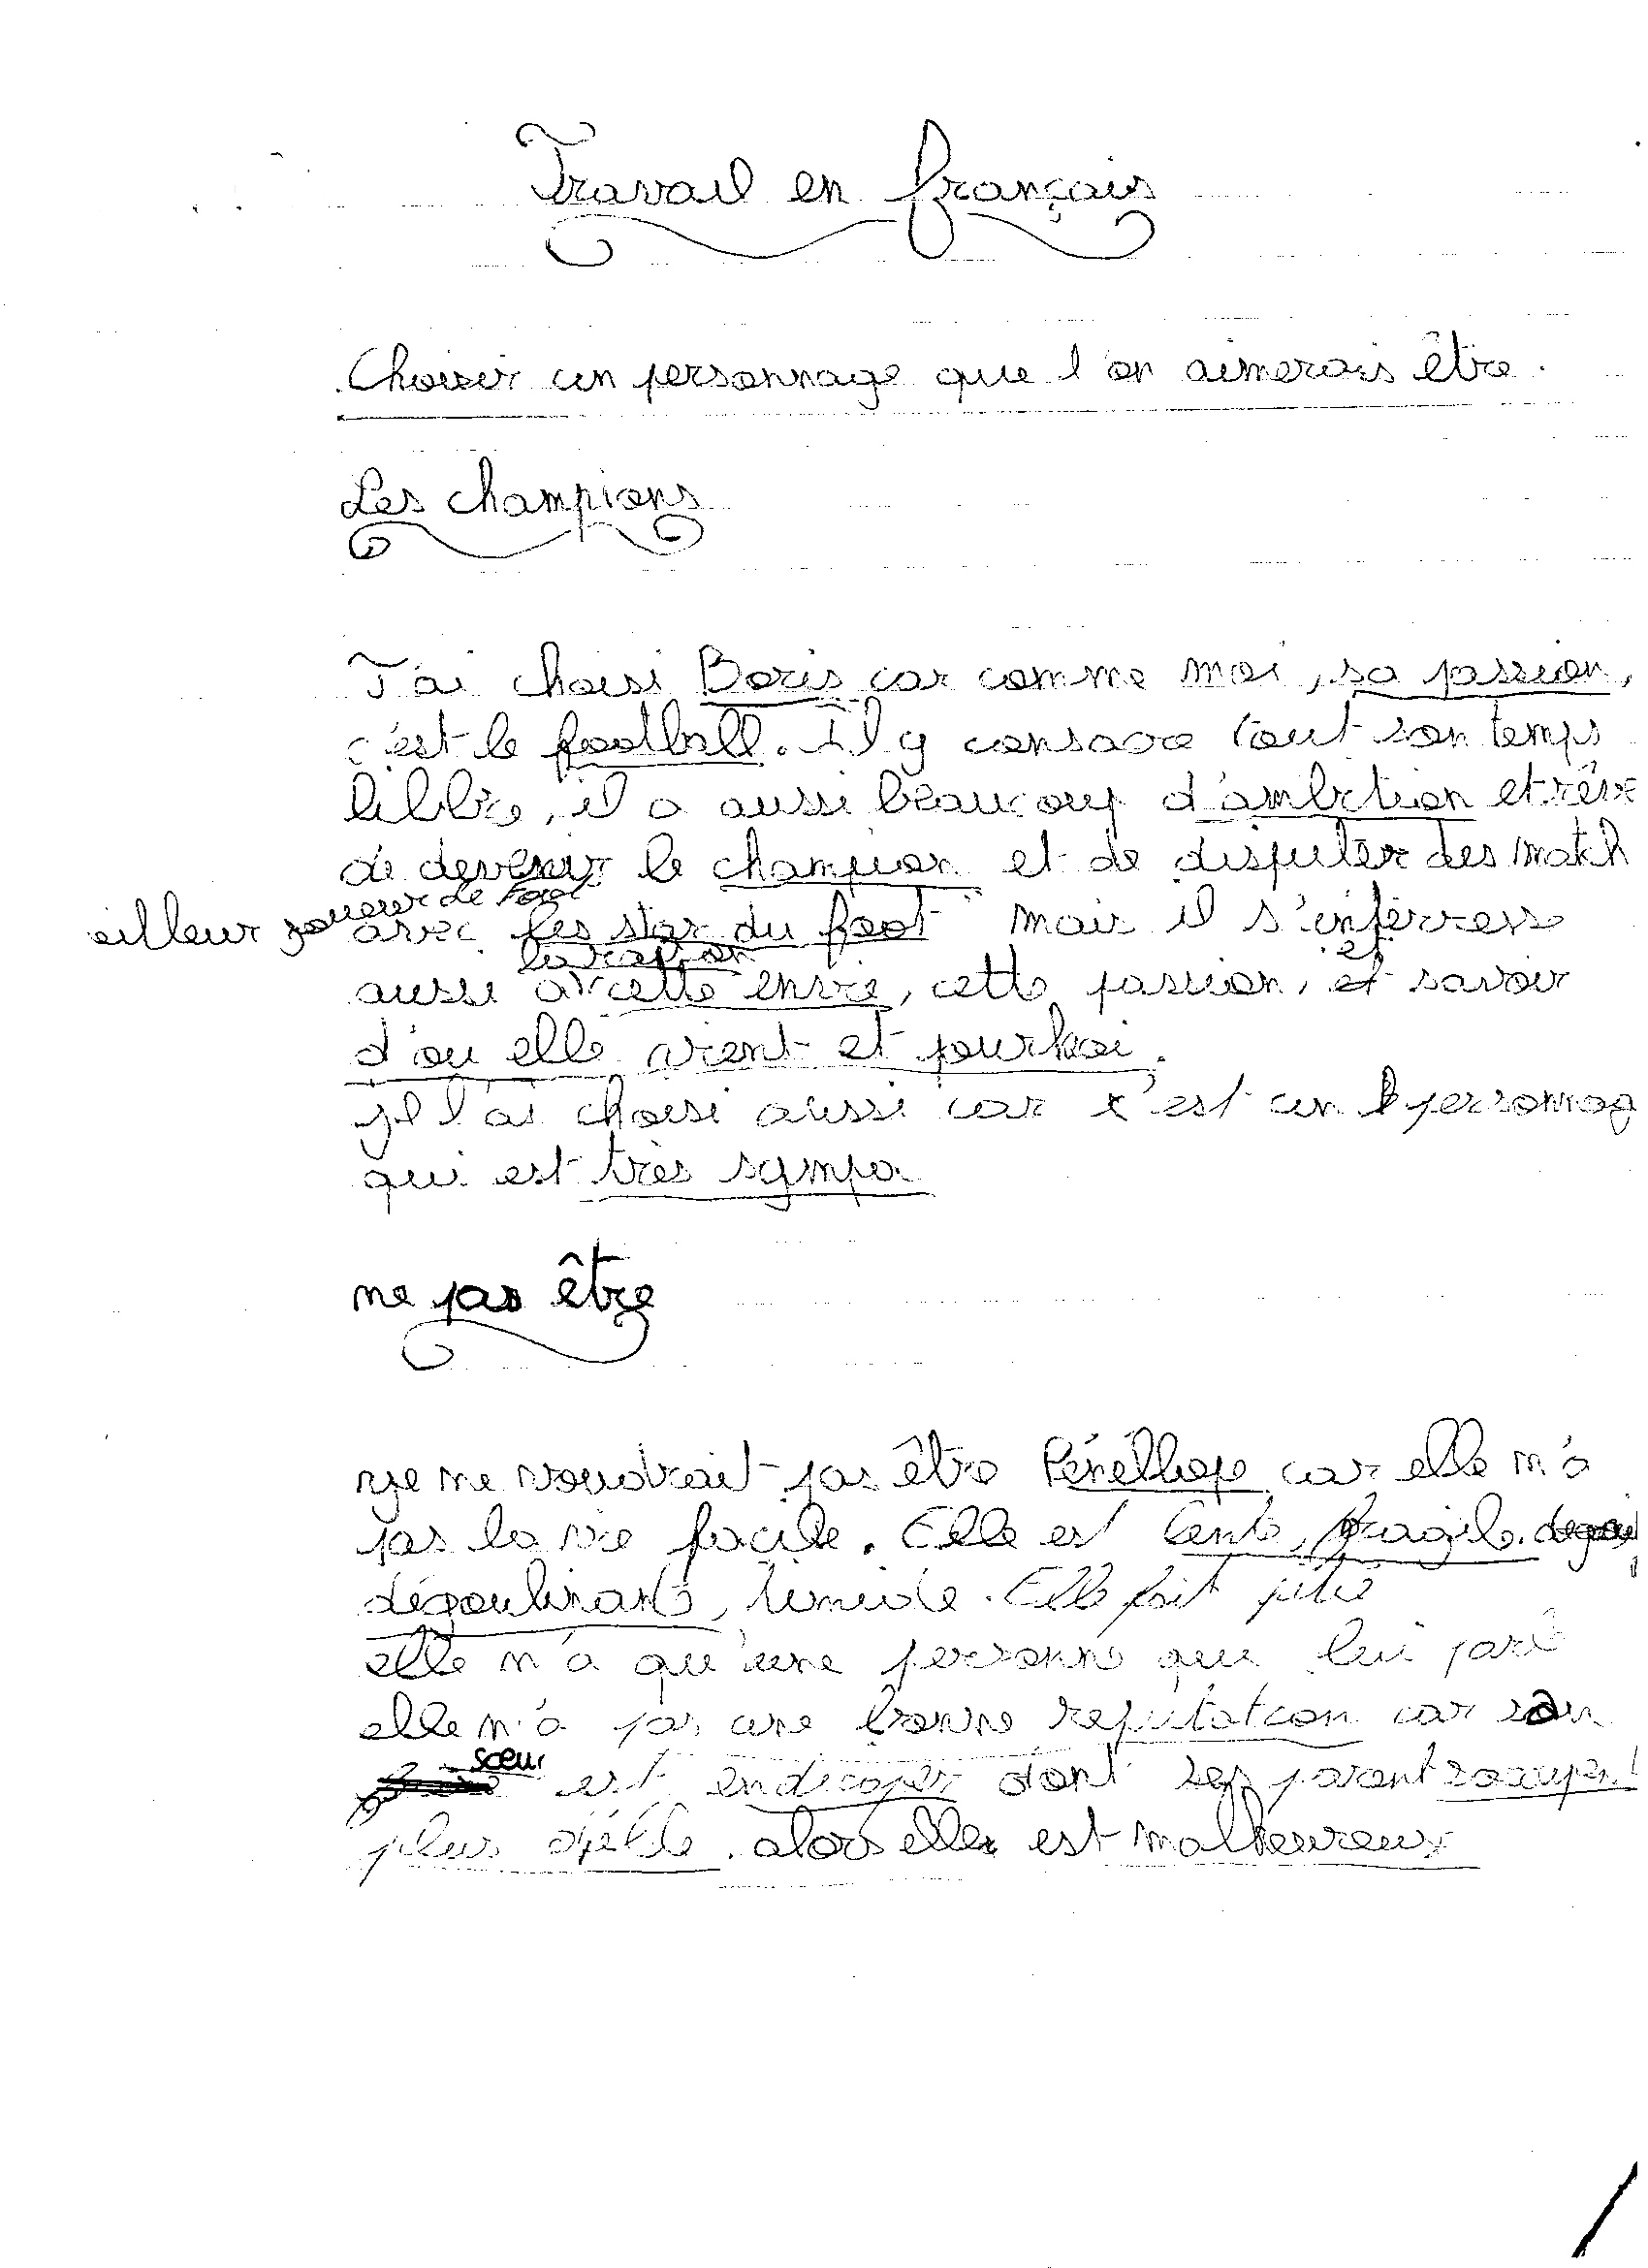 Travail en français
Choisir un personnage que l'on aimerais être.
Les champions
J'ai choisi Boris car comme moi, sa passion,
c'est le football. Il y consacre tout son temps
libbre, il a aussi beaucoup d'ambition et rêve
de devenir le champion et de disputer des match
ailleur joueur de Foot
avec les star du foot mais il s'interresse
la raison et
aussi a cette envie, cette passion, et savoir
d'ou elle vient et pourkoi.
je l'ai choisi aussi car c'est un personnag
qui est très sympa
ne pas être
je ne voudrait pas être Pénéllope car elle n'a
pas la vie facile. Elle est lente, fragile,
dégoulinante, timide. Elle fait pitié
elle n'a qu'une personne qui lui parle
elle n'a pas une bonne reputation car son
sœur est endicaper dont ses parent socupent
plus d'elle. alors elle est malheureux